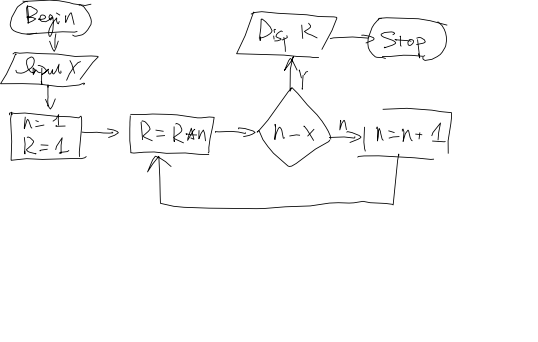 Begin
Input X
n=1
R=1
R=R*n
n-x
Y
Disp R
Stop
n
n=n+1